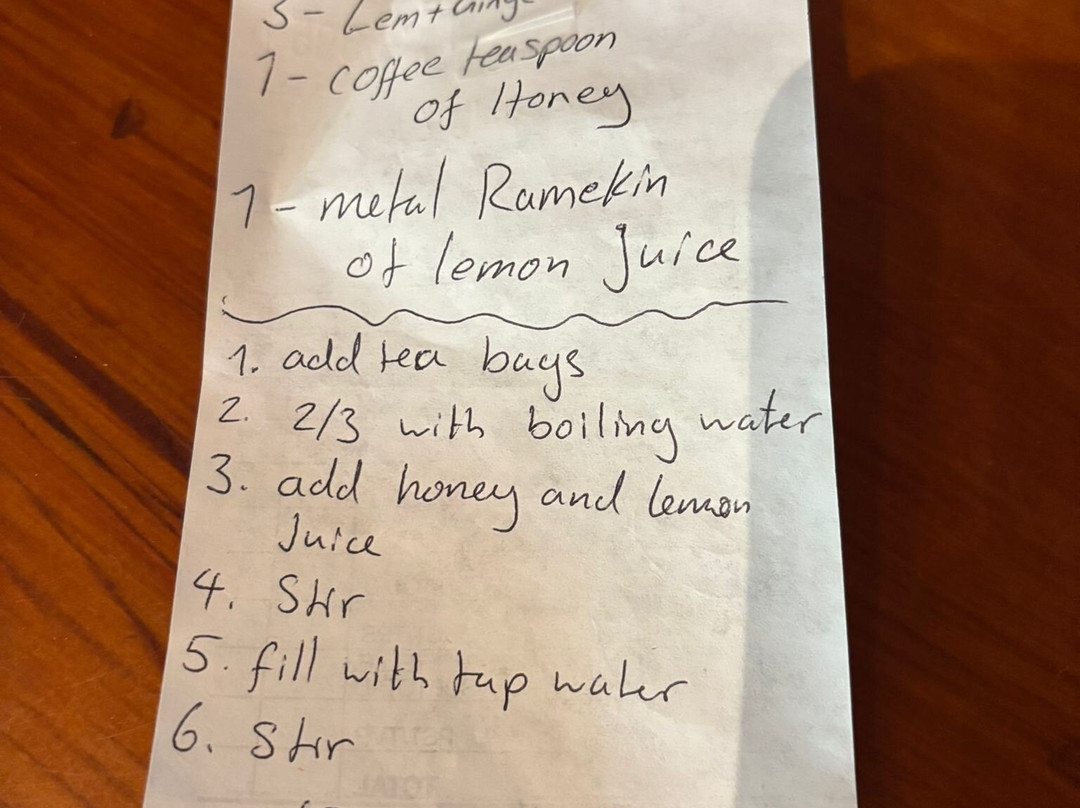 3 - Lem + Ginge
1 - coffee teaspoon
of Honey
1 - metal Ramekin
of lemon Juice
1. add tea bags
2. 2/3 with boiling water
3. add honey and lemon
Juice
4. Stir
5. fill with tap water
6. Stir
TOTAL